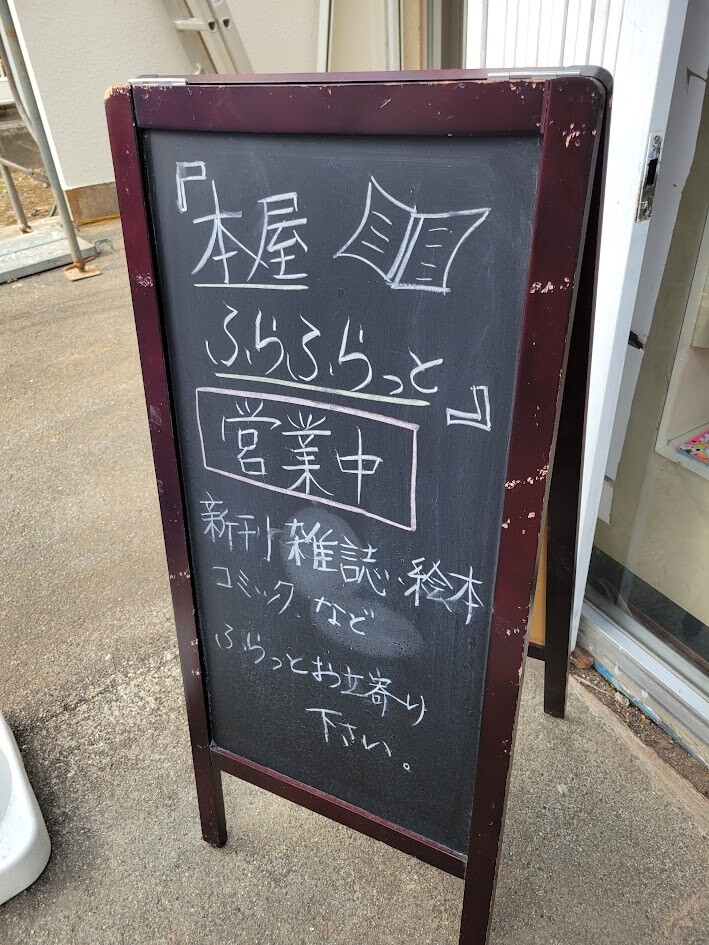 『本屋
ふらふらっと』
営業中
新刊 雑誌、絵本
コミック、など
ふらっとお立寄り
下さい。